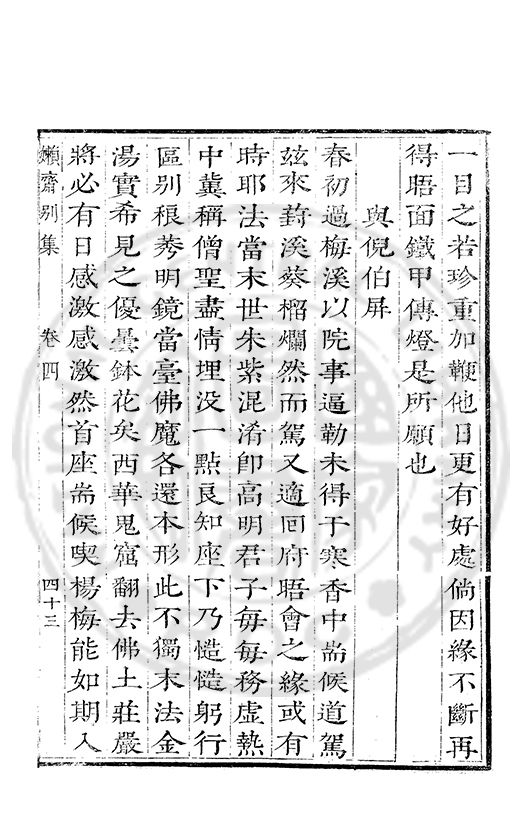 一日之若珍重加鞭他日更有好處倘因緣不斷再
得晤面鐵甲傳燈是所願也
與倪伯屏
春初過梅溪以院事逼勒未得于寒香中耑候道駕
兹來葑溪葵榴爛然而駕又適囘府晤會之緣或有
時耶法當末世朱紫混淆卽高明君子每每務虛熱
中冀稱僧聖盡情埋没一點良知座下乃慥慥躬行
區别稂莠明鏡當臺佛魔各還本形此不獨末法金
湯實希見之優曇鉢花矣西華鬼窟翻去佛土莊嚴
將必有日感激感激然首座耑候喫楊梅能如期入
嬾齋别集 卷四 四十三